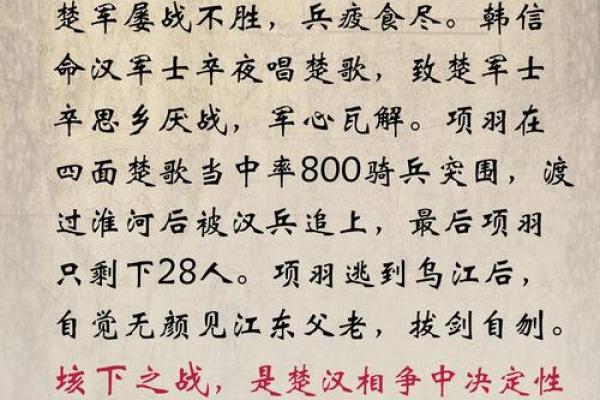 楚军屡战不胜，兵疲食尽。韩信
命汉军士卒夜唱楚歌，致楚军士
卒思乡厌战，军心瓦解。项羽在
四面楚歌当中率800骑兵突围，渡
过淮河后被汉兵追上，最后项羽
只剩下28人。项羽逃到乌江后，
自觉无颜见江东父老，拔剑自刎。
垓下之战，是楚汉相争中决定性